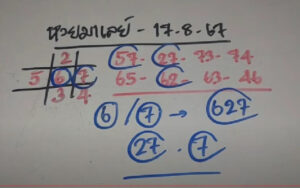 หวยมาเลย์ - 17-8-67
2
5 6 7
3 4
57- 27- 73- 74
65- 62- 63- 46
6 / 7 → 627
27 . 7